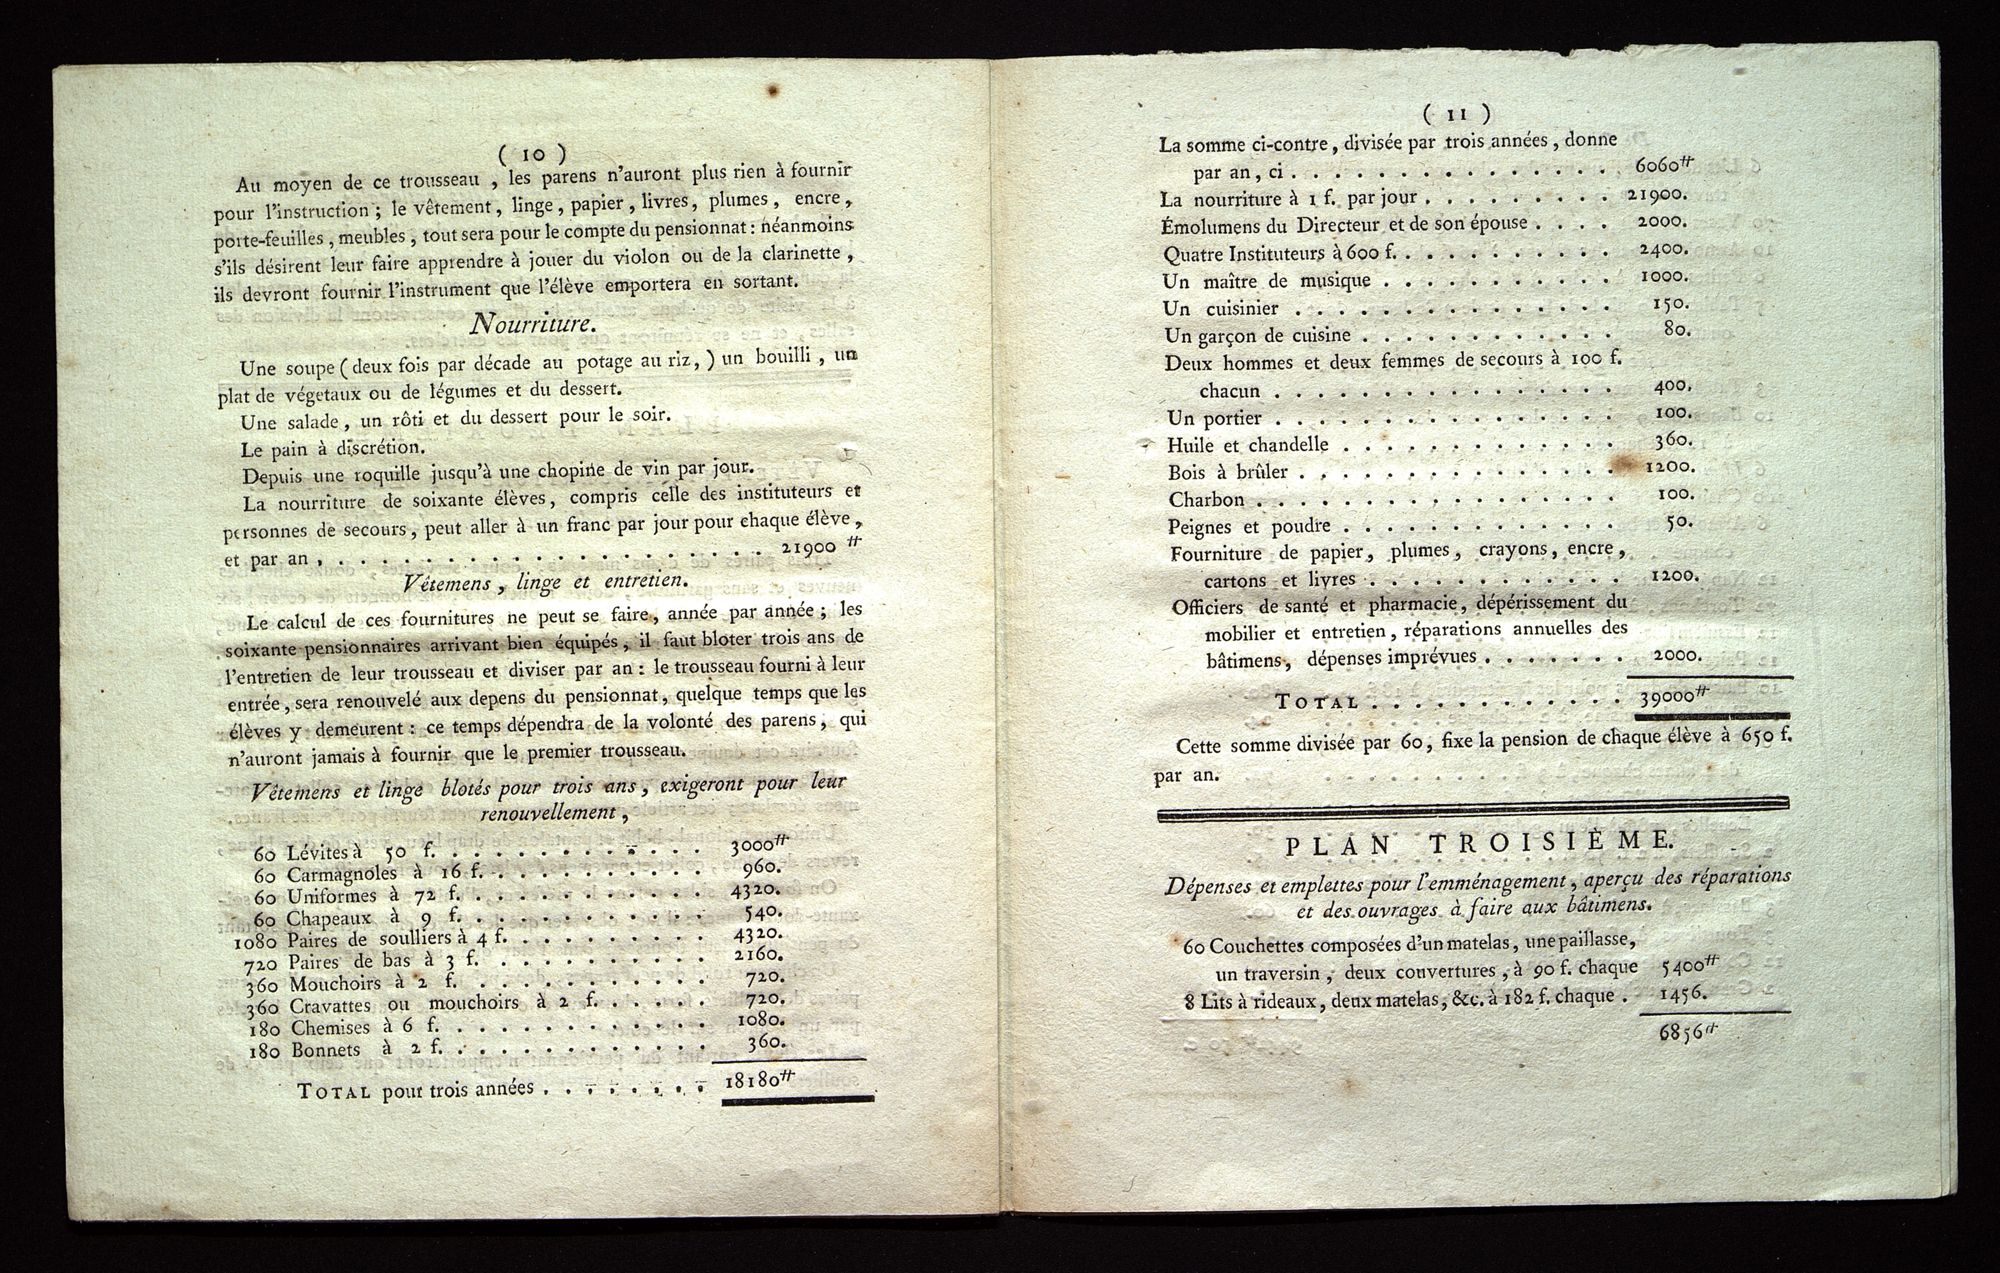 ( 10 )
Au moyen de ce trousseau , les parens n'auront plus rien à fournir
pour l'instruction ; le vêtement , linge , papier , livres , plumes , encre ,
porte-feuilles , meubles , tout sera pour le compte du pensionnat : néanmoins
s'ils désirent leur faire apprendre à jouer du violon ou de la clarinette ,
ils devront fournir l'instrument que l'élève emportera en sortant.
Nourriture.
Une soupe ( deux fois par décade au potage au riz , ) un bouilli , un
plat de végetaux ou de légumes et du dessert.
Une salade , un rôti et du dessert pour le soir.
Le pain à discrétion.
Depuis une roquille jusqu'à une chopine de vin par jour.
La nourriture de soixante élèves , compris celle des instituteurs et
personnes de secours , peut aller à un franc par jour pour chaque élève ,
et par an , . . . . . . . . . . . . . . . . . . . . 21900 ₶
Vêtemens , linge et entretien.
Le calcul de ces fournitures ne peut se faire , année par année ; les
soixante pensionnaires arrivant bien équipés , il faut bloter trois ans de
l'entretien de leur trousseau et diviser par an : le trousseau fourni à leur
entrée , sera renouvelé aux depens du pensionnat , quelque temps que les
élèves y demeurent : ce temps dépendra de la volonté des parens , qui
n'auront jamais à fournir que le premier trousseau.
Vêtemens et linge blotés pour trois ans , exigeront pour leur
renouvellement ,
60 Lévites à 50 f. . . . . . . . . . . . 3000₶
60 Carmagnoles à 16 f. . . . . . . . . . . 960.
60 Uniformes à 72 f. . . . . . . . . . . . 4320.
60 Chapeaux à 9 f. . . . . . . . . . . . 540.
1080 Paires de soulliers à 4 f. . . . . . . . . . 4320.
720 Paires de bas à 3 f. . . . . . . . . . . 2160.
360 Mouchoirs à 2 f. . . . . . . . . . . . 720.
360 Cravattes ou mouchoirs à 2 f. . . . . . 720.
180 Chemises à 6 f. . . . . . . . . . . . . 1080.
180 Bonnets à 2 f. . . . . . . . . . . . . 360.
TOTAL pour trois années . . . . . . . . 18180₶
( 11 )
La somme ci-contre , divisée par trois années , donne
par an , ci . . . . . . . . . . . . . . . 6060₶
La nourriture à 1 f. par jour . . . . . . . . . 21900.
Émolumens du Directeur et de son épouse . . . . 2000.
Quatre Instituteurs à 600 f. . . . . . . . . . . 2400.
Un maître de musique . . . . . . . . . . . 1000.
Un cuisinier . . . . . . . . . . . . . . . 150.
Un garçon de cuisine . . . . . . . . . . . . 80.
Deux hommes et deux femmes de secours à 100 f.
chacun . . . . . . . . . . . . . . . . 400.
Un portier . . . . . . . . . . . . . . . . 100.
Huile et chandelle . . . . . . . . . . . . . 360.
Bois à brûler . . . . . . . . . . . . . . . 1200.
Charbon . . . . . . . . . . . . . . . . . 100.
Peignes et poudre . . . . . . . . . . . . . 50.
Fourniture de papier , plumes , crayons , encre ,
cartons et livres . . . . . . . . . . . . 1200.
Officiers de santé et pharmacie , dépérissement du
mobilier et entretien , réparations annuelles des
bâtimens , dépenses imprévues . . . . . . . 2000.
TOTAL . . . . . . . . . . . . 39000₶
Cette somme divisée par 60 , fixe la pension de chaque élève à 650 f.
par an.
PLAN TROISIÈME.
Dépenses et emplettes pour l'emménagement , aperçu des réparations
et des ouvrages à faire aux bâtimens.
60 Couchettes composées d'un matelas , une paillasse ,
un traversin , deux couvertures , à 90 f. chaque 5400₶
8 Lits à rideaux , deux matelas , &c. à 182 f. chaque . 1456.
6856₶